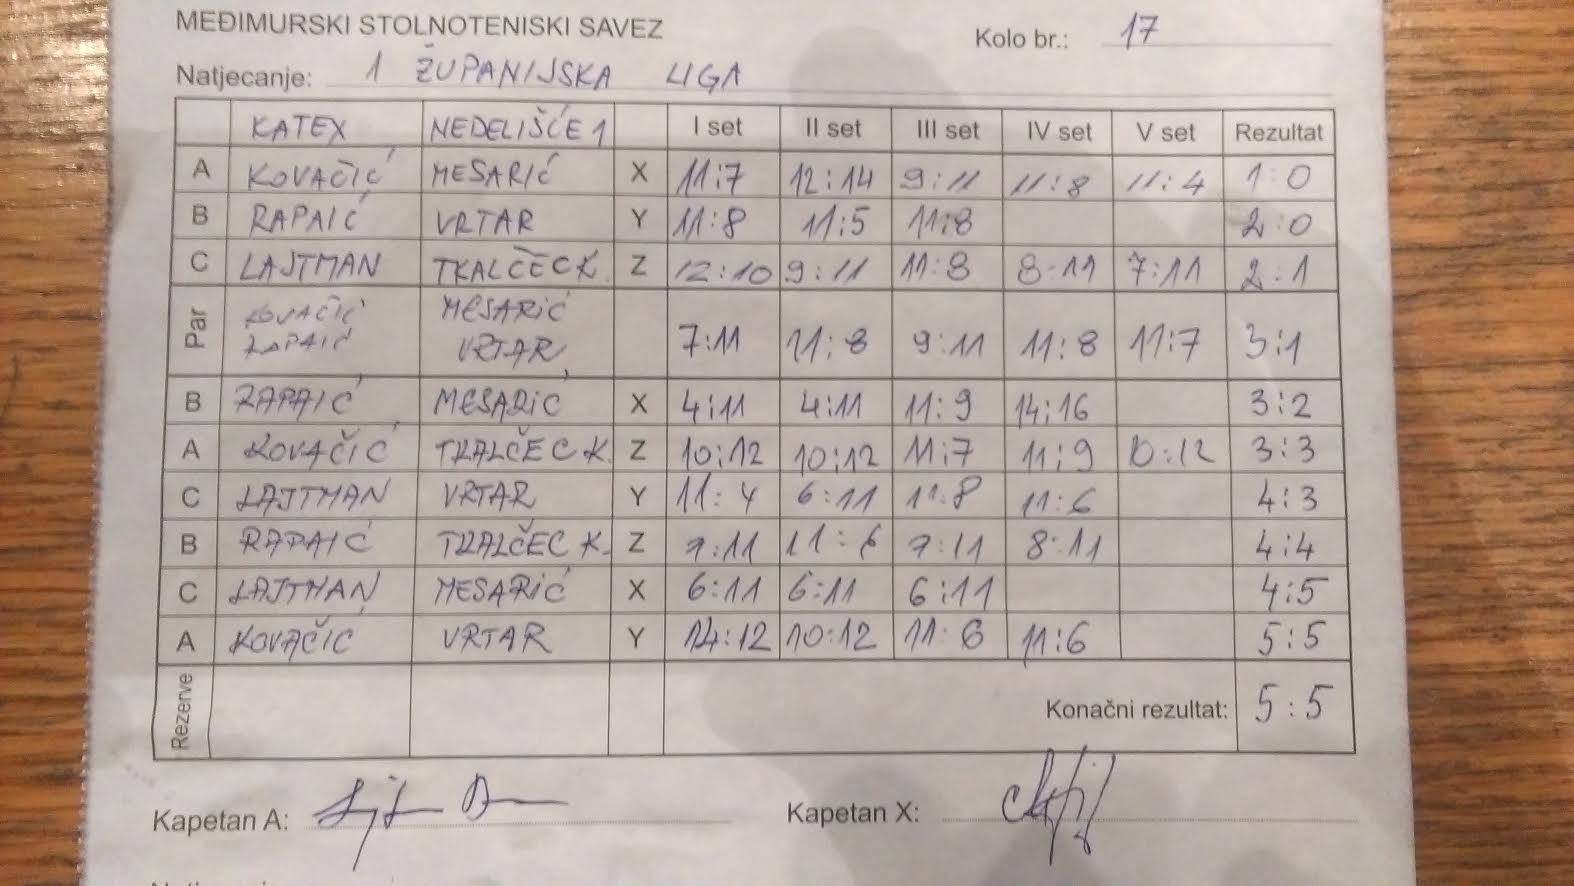 MEĐIMURSKI STOLNOTENISKI SAVEZ
Kolo br.: 17
Natjecanje: 1 ŽUPANIJSKA LIGA
KATEX NEDELIŠĆE 1 I set II set III set IV set V set Rezultat
A KOVAČIĆ MESARIĆ X 11:7 12:14 9:11 11:8 11:4 1:0
B RAPAIĆ VRTAR Y 11:8 11:5 11:8 2:0
C LAJTMAN TKALČEC K. Z 12:10 9:11 11:8 8:11 7:11 2:1
Par KOVAČIĆ MESARIĆ
RAPAIĆ VRTAR 7:11 11:8 9:11 11:8 11:7 3:1
B RAPAIĆ MESARIĆ X 4:11 4:11 11:9 14:16 3:2
A KOVAČIĆ TKALČEC K. Z 10:12 10:12 11:7 11:9 10:12 3:3
C LAJTMAN VRTAR Y 11:4 6:11 11:8 11:6 4:3
B RAPAIĆ TKALČEC K. Z 11:6 8:11 4:4
C LAJTMAN MESARIĆ X 6:11 6:11 6:11 4:5
A KOVAČIĆ VRTAR Y 14:12 10:12 11:6 11:6 5:5
Rezerve Konačni rezultat: 5:5
Kapetan A: Kapetan X: